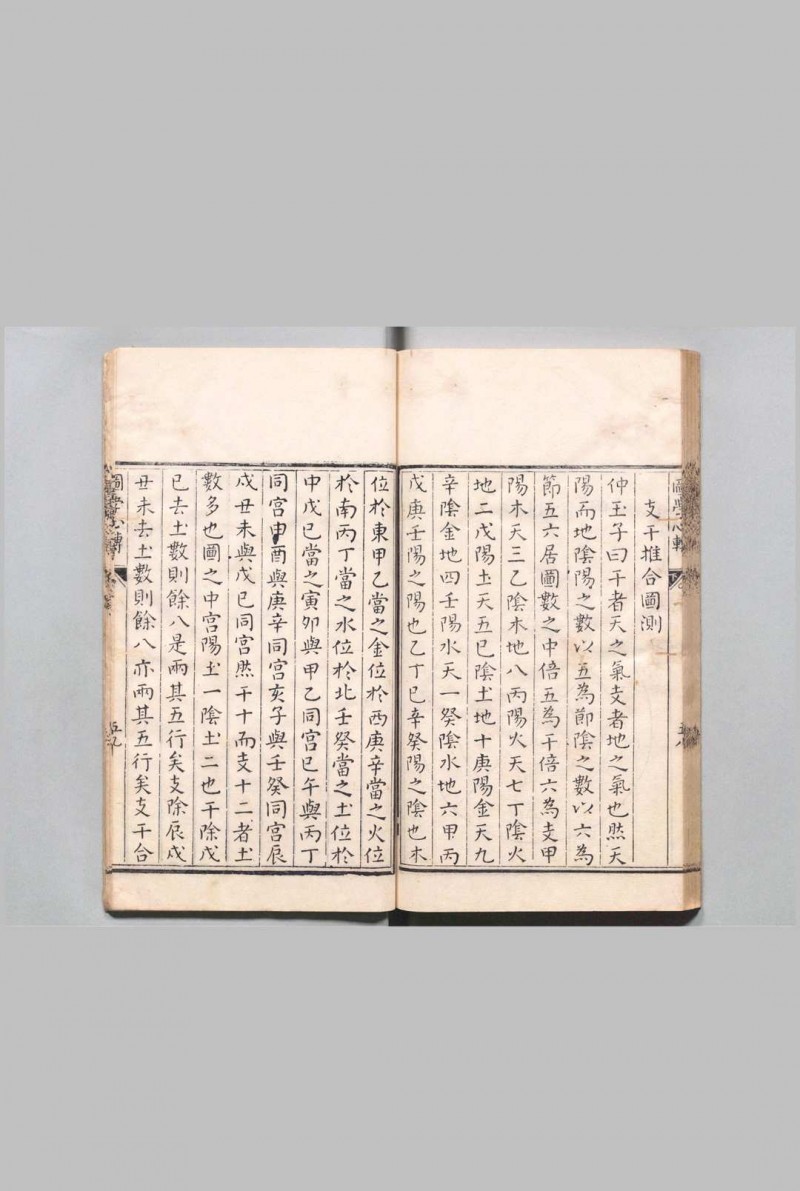 支干推合圖測
仲玉子曰干者天之氣支者地之氣也然天
陽而地陰陽之數以五為節陰之數以六為
節五六居圖數之中倍五為干倍六為支甲
陽木天三乙陰木地八丙陽火天七丁陰火
地二戊陽土天五已陰土地十庚陽金天九
辛陰金地四壬陽水天一癸陰水地六甲丙
戊庚壬陽之陽也乙丁已辛癸陽之陰也木
位於東甲乙當之金位於西庚辛當之火位
於南丙丁當之水位於北壬癸當之土位於
中戊已當之寅卯與甲乙同宮巳午與丙丁
同宮申酉與庚辛同宮亥子與壬癸同宮辰
戌丑未與戊已同宮然干十而支十二者土
數多也圖之中宮陽土一陰土二也干除戊
已去土數則餘八是兩其五行矣支除辰戌
丑未去土數則餘八亦兩其五行矣支干合